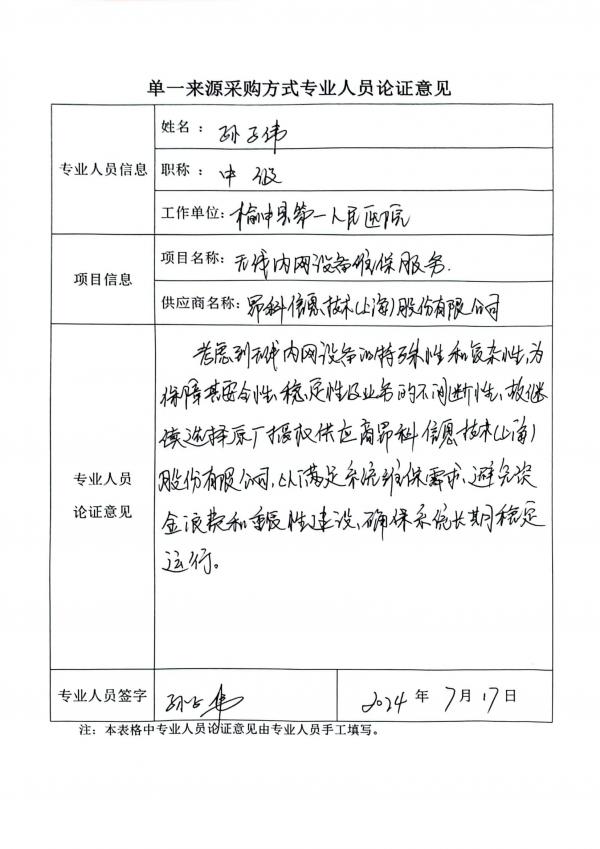 单一来源采购方式专业人员论证意见
专业人员信息
姓名：孙子伟
职称：中级
工作单位：榆中县第一人民医院
项目信息
项目名称：无线内网设备维保服务.
供应商名称：昂科信息技术(上海)股份有限公司
专业人员
论证意见
考虑到无线内网设备的特殊性和复杂性,为
保障其安全性、稳定性及业务的不间断性,故继
续选择原厂授权供应商昂科信息技术(上海)
股份有限公司,以满足系统维保需求,避免资
金浪费和重复性建设,确保系统长期稳定
运行。
专业人员签字
孙子伟
2024年7月17日
注：本表格中专业人员论证意见由专业人员手工填写。